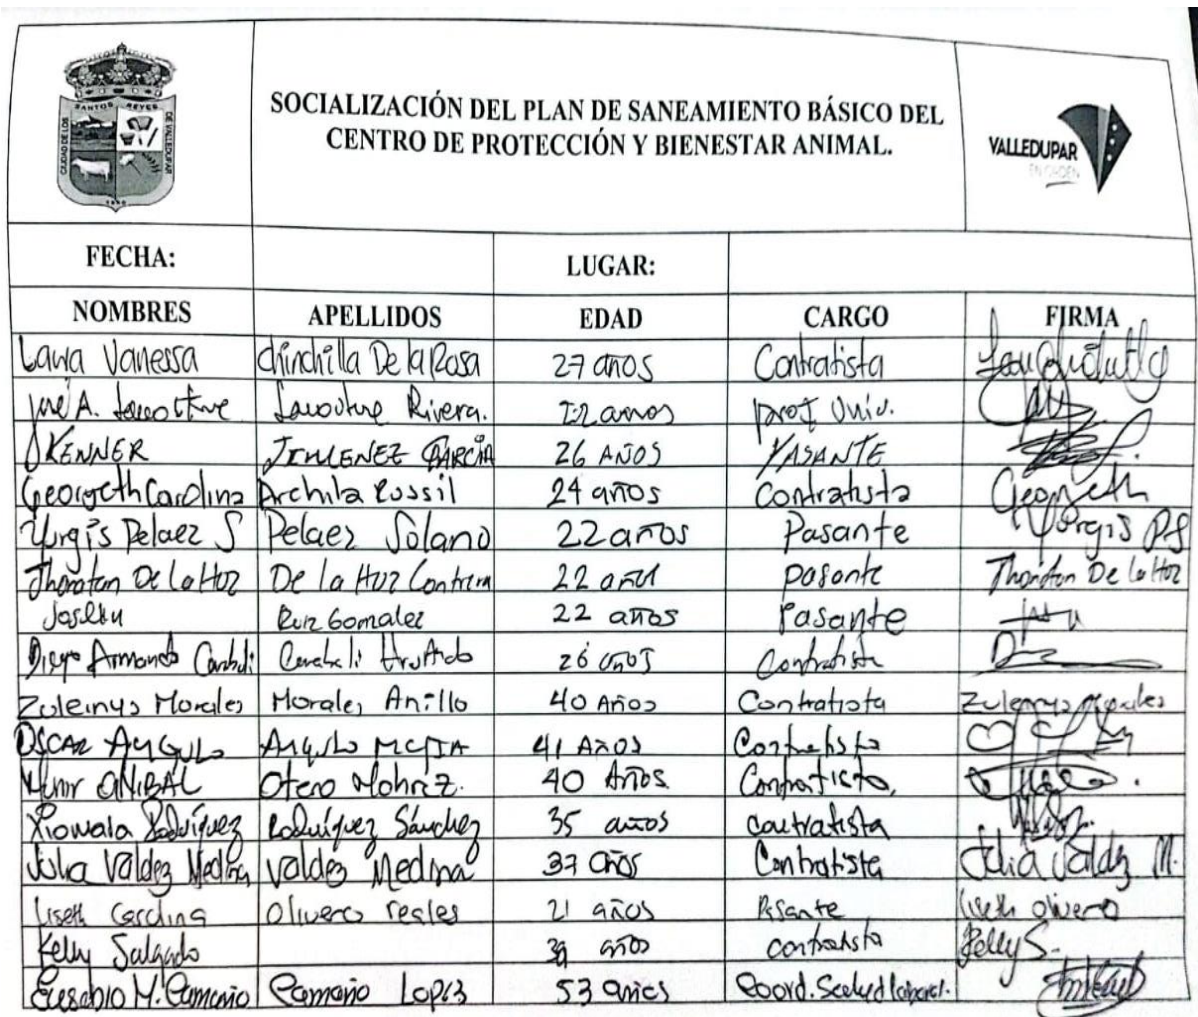 SANTOS REYES
CIUDAD DE LOS
DE VALLEDUPAR
SOCIALIZACIÓN DEL PLAN DE SANEAMIENTO BÁSICO DEL
CENTRO DE PROTECCIÓN Y BIENESTAR ANIMAL.
VALLEDUPAR
EN ORDEN
FECHA: LUGAR:
NOMBRES APELLIDOS EDAD CARGO FIRMA
Laura Vanessa Chinchilla De la Rosa 27 años Contratista
José A. Rivera. años prof Univ.
KENNER JIMENEZ GARCIA 26 AÑOS PASANTE
Georgeth Carolina Archila Rossil 24 años Contratista Georgeth
Yurgis Pelaez S Pelaez Solano 22 años Pasante Yorgis PS
De La Hoz De la Hoz 22 años pasante De La Hoz
Ruiz Gomalez 22 años Pasante
Diego Armando 26 años Contratista
Zuleinys Morales Morales Anillo 40 Años Contratista Zuleinys Morales
OSCAR ANGULO Angulo 41 AÑOS Contratista
ANIBAL Otero 40 Años Contratista
Xiomara Rodríguez Rodríguez Sánchez 35 años contratista
Julia Valdez Medina Valdez Medina 37 años Contratista Julia Valdez M.
Liseth Carolina Olivero reales 21 años Pasante liseth olivero
Kelly Salgado 39 años contratista Kelly S.
Eusebio M. Camaño Camaño Lopez 53 años Coord. Salud laboral.